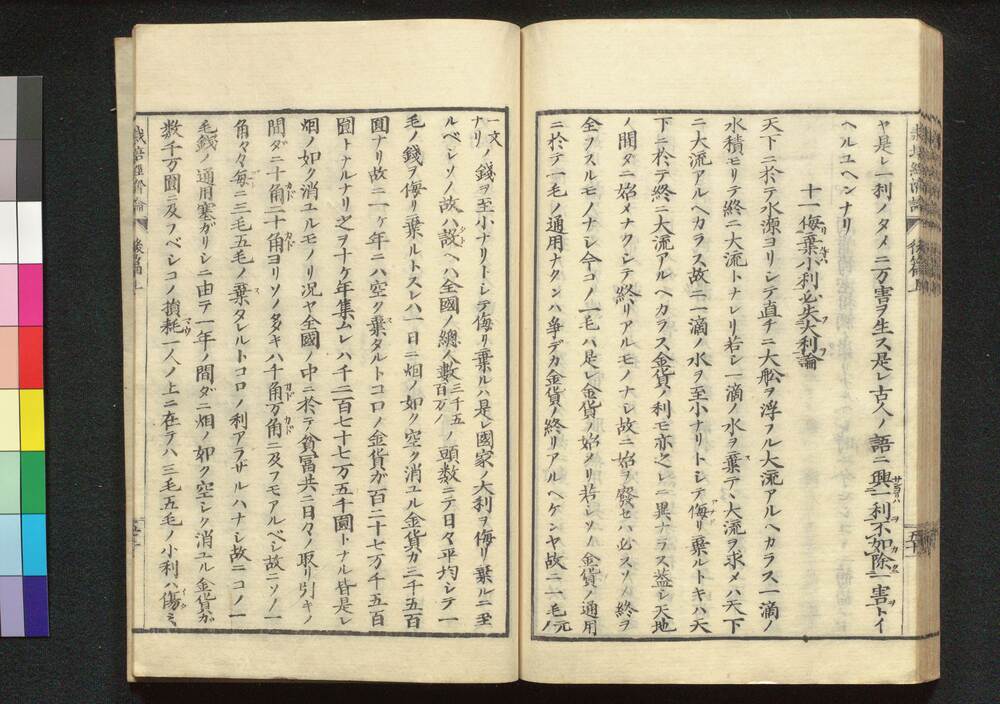 ヤ是レ一利ノタメニ万害ヲ生ス是レ古人ノ語ニ興一利不如除一害トイ
ヘルユヘンナリ
十一侮棄小利必失大利論
天下ニ於テ水源ヨリシテ直チニ大舩ヲ浮フル大流アルヘカラス一滴ノ
水積モリテ終ニ大流トナレリ若シ一滴ノ水ヲ棄テヽ大流ヲ求メハ天下
ニ大流アルヘカラス故ニ一滴ノ水ヲ至小ナリトシテ侮リ棄ルトキハ天
下ニ於テ終ニ大流アルヘカラス金貨ノ利モ亦之レニ異ナラス蓋シ天地
ノ間タニ始メナクシテ終リアルモノナシ故ニ始ヲ發セハ必スソノ終ヲ
全フスルモノナシ今コノ一毛ハ是レ金貨ノ始メリ若シソノ金貨ノ通用
ニ於テ一毛ノ通用ナクンハ争デカ金貨ノ終リアルヘケンヤ故ニ一毛ノ元
一文ナリノ錢ヲ至小ナリトシテ侮リ棄ルハ是レ國家ノ大利ヲ侮リ棄ルニ至
ルベシソノ故ハ設ヘハ全國ノ總人數三千五百万ノ頭數ニテ日々平均シテ一
毛ノ錢ヲ侮リ棄ルトスレハ一日ニ烟ノ如ク空ク消ユル金貨カ三千五百
圓ナリ故ニ一ヶ年ニハ空ク棄タルトコロノ金貨ガ百二十七万千五百
圓トナルナリ之ヲ十ヶ年集ムレハ千二百七十七万五千圓トナル皆是レ
烟ノ如ク消ユルモノリ况ヤ全國ノ中ニ於テ貧冨共ニ日々ノ取リ引キノ
間ダニ十角二十角ヨリソノ多キハ千角万角ニ及フモアルベシ故ニソノ一
角々々毎ニ三毛五毛ノ棄タレルトコロノ利アラザルハナシ故ニコノ一
毛錢ノ通用塞ガリシニ由テ一年ノ間ダニ烟ノ如ク空シク消ユル金貨ガ
數千万圓ニ及フベシコノ損耗一人ノ上ニ在テハ三毛五毛ノ小利ハ傷ミ
栽培經濟論
後篇上